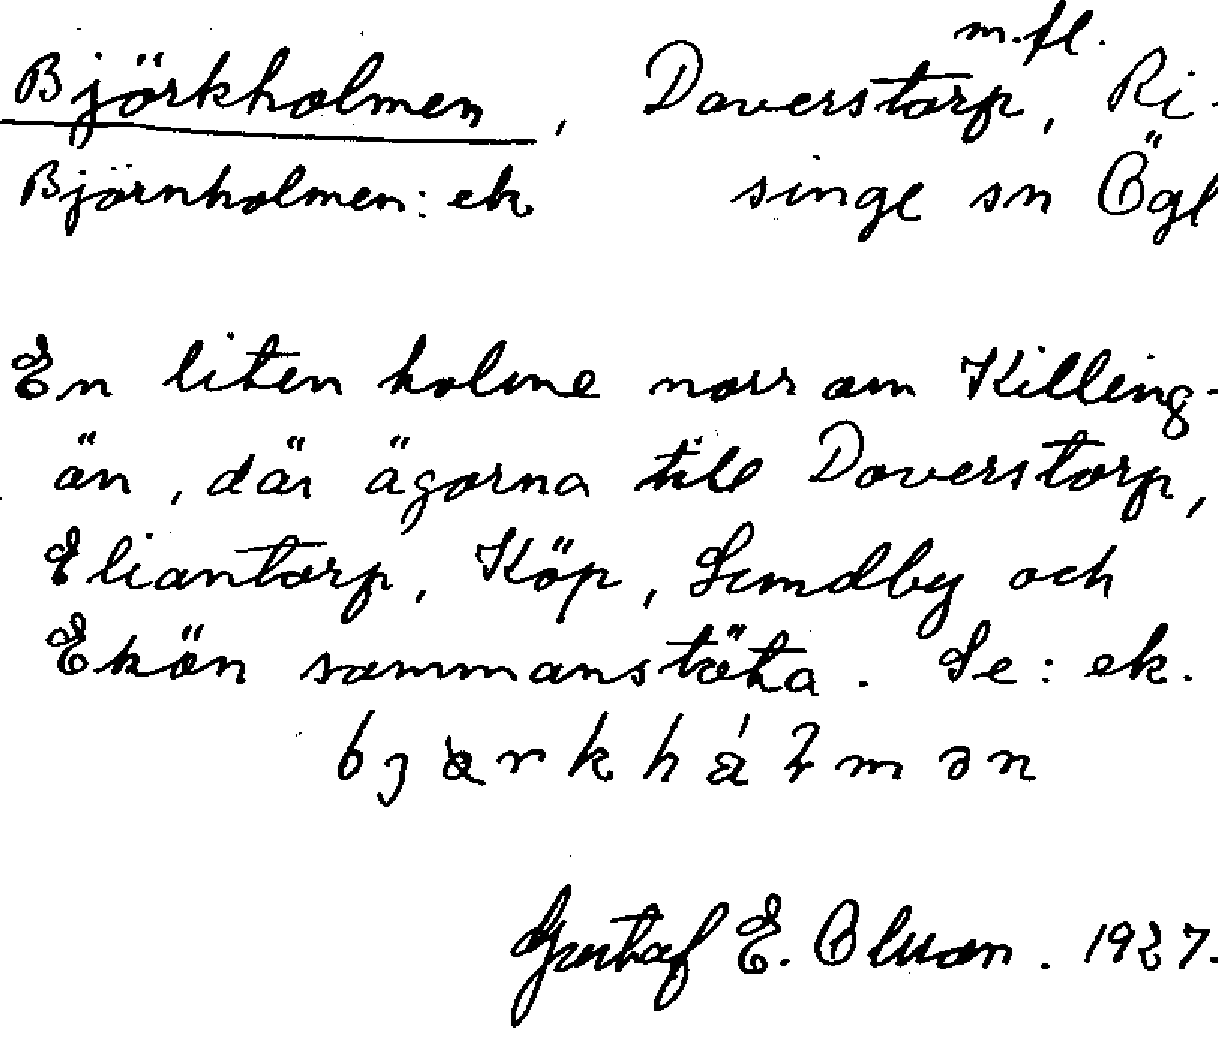 m.fl.
Björkholmen, Doverstorp, Ri-
Björnholmen: ek singe sn Ögl
En liten holme norr om Killing-
ön, där ägorna till Doverstorp,
Eliantorp, Köp, Sundby och
Ekön sammanstöta. Se: ek.
Gustaf E. Olsson. 1927.